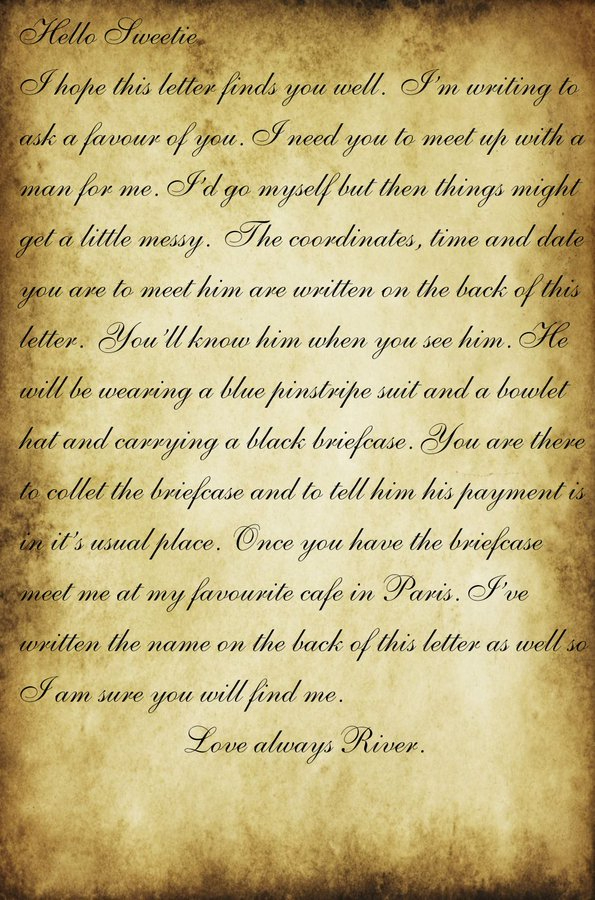 Hello Sweetie
I hope this letter finds you well. I'm writing to
ask a favour of you. I need you to meet up with a
man for me. I'd go myself but then things might
get a little messy. The coordinates, time and date
you are to meet him are written on the back of this
letter. You'll know him when you see him. He
will be wearing a blue pinstripe suit and a bowlet
hat and carrying a black briefcase. You are there
to collet the briefcase and to tell him his payment is
in it's usual place. Once you have the briefcase
meet me at my favourite cafe in Paris. I've
written the name on the back of this letter as well so
I am sure you will find me.
Love always River.